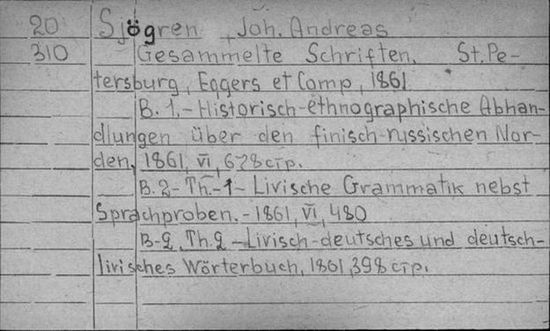 20 Sjögren, Joh. Andreas
310 Gesammelte Schriften. St. Pe-
tersburg, Eggers et Comp, 1861
B. 1.-Historisch-ethnographische Abhan-
dlungen über den finisch-russischen Nor-
den, 1861, VI, 678 стр.
B. 2-Th.-1- Livische Grammatik nebst
Sprachproben.-1861, VI, 480
B-2, Th. 2-Livisch-deutsches und deutsch-
livisches Wörterbuch, 1861, 398 стр.